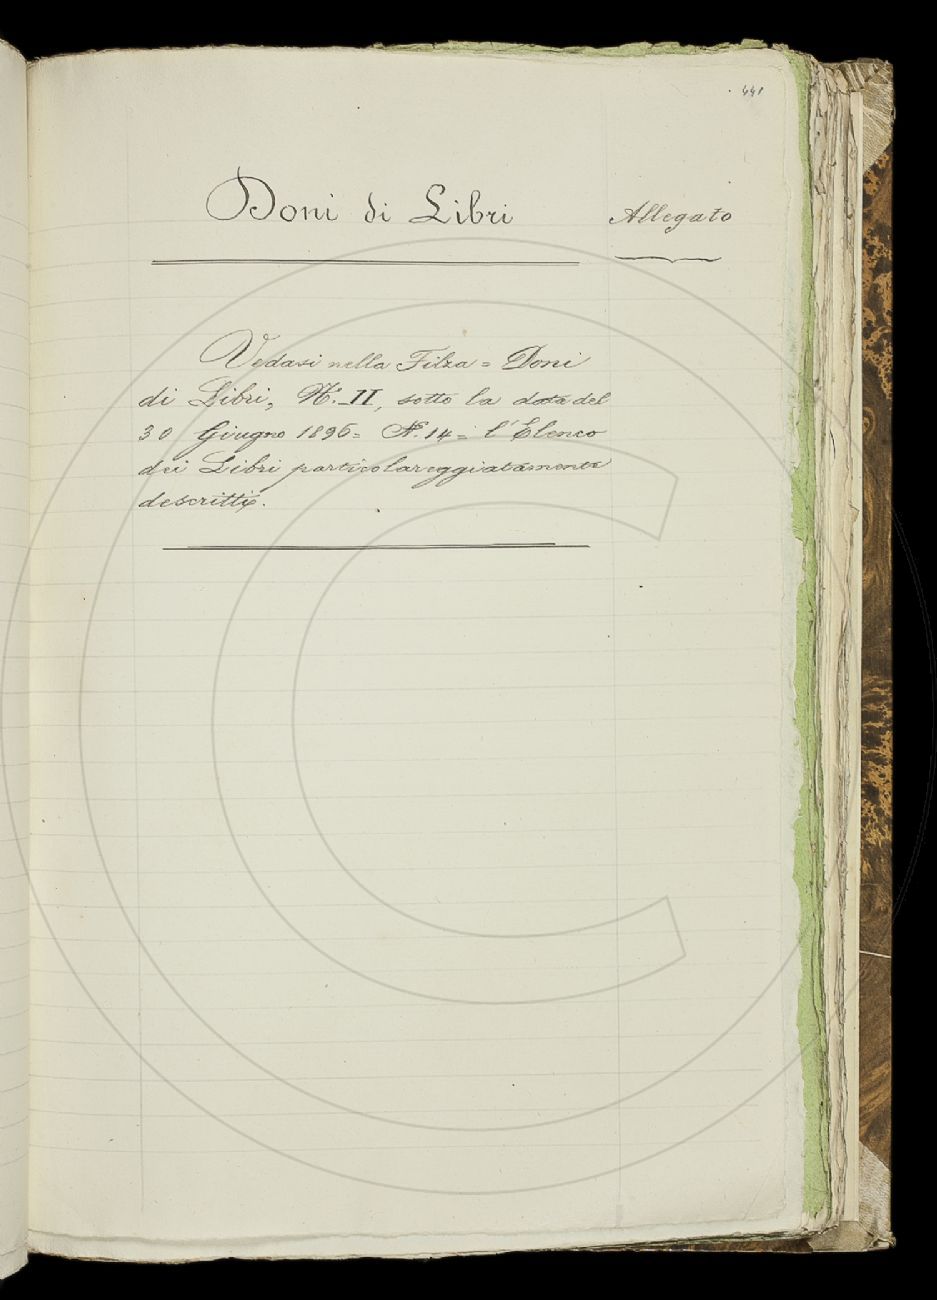 441
Doni di Libri
Allegato
Vedasi nella Filza = Doni
di Libri, N. II, sotto la data del
30 Giugno 1896 = N. 14 = l'Elenco
dei Libri particolareggiatamente
descritti.